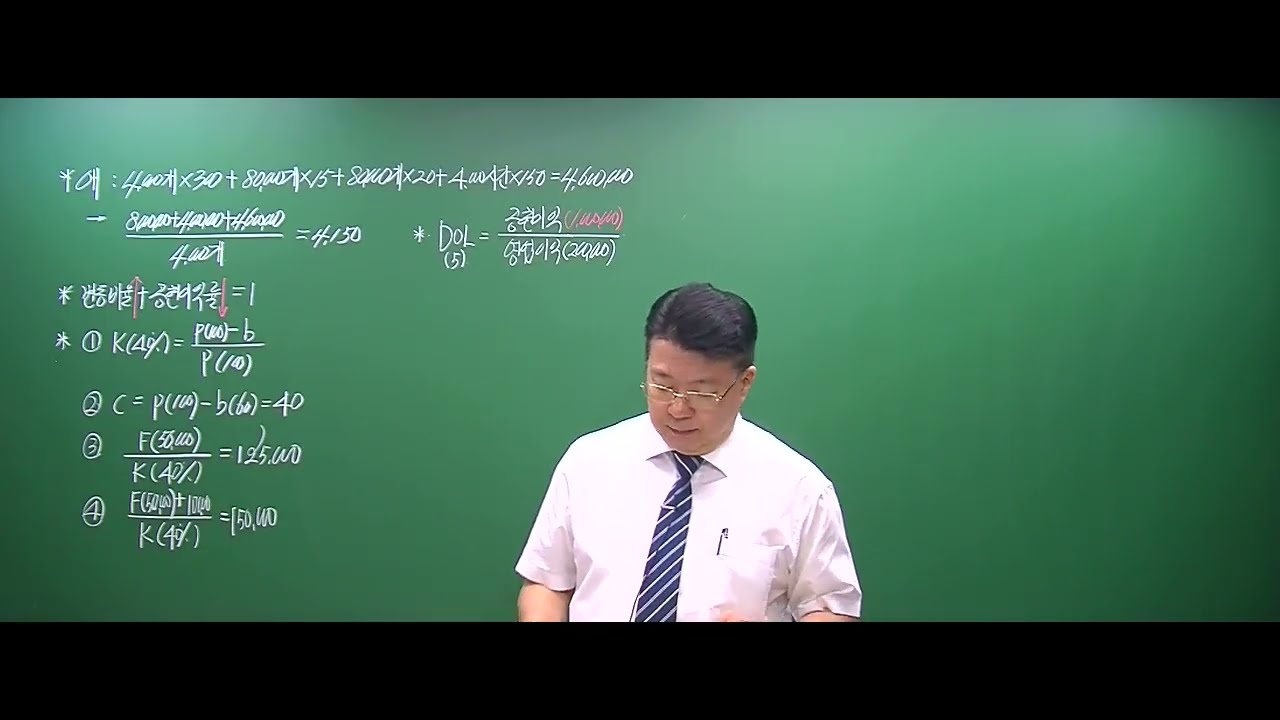 * 예 : 4,000개×300 + 80,000개×15 + 80,000개×20 + 4,000시간×150 = 4,600,000
→ 8,000,000+4,000,000+4,600,000 / 4,000개 = 4,150
* DOL (5) = 공헌이익(1,000,000) / 영업이익(200,000)
* 변동비율↑ + 공헌이익률↓ = 1
* ① K(40%) = P(100) - b / P(100)
② C = P(100) - b(60) = 40
③ F(50,000) / K(40%) = 125,000
④ F(50,000)+10,000 / K(40%) = 150,000